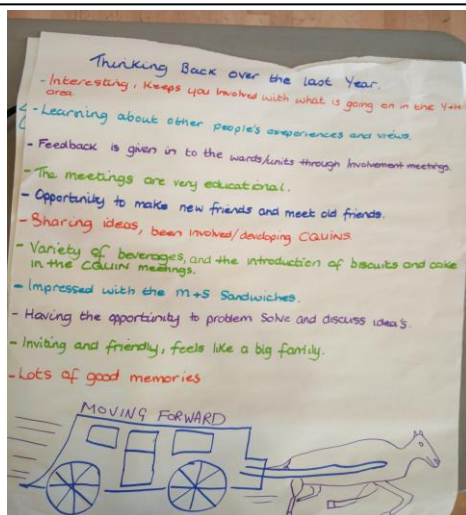 Thinking Back over the last Year.
- Interesting, Keeps you involved with what is going on in the Y+H
area
- Learning about other people's experiences and views.
- Feedback is given in to the wards/units through Involvement meetings.
- The meetings are very educational.
- Opportunity to make new friends and meet old friends.
- Sharing ideas, been involved/developing CQUINS.
- Variety of beverages, and the introduction of biscuits and cake
in the CQUIN meetings.
- Impressed with the M+S Sandwiches.
- Having the opportunity to problem Solve and discuss idea's.
- Inviting and friendly, feels like a big family.
- Lots of good memories
MOVING FORWARD